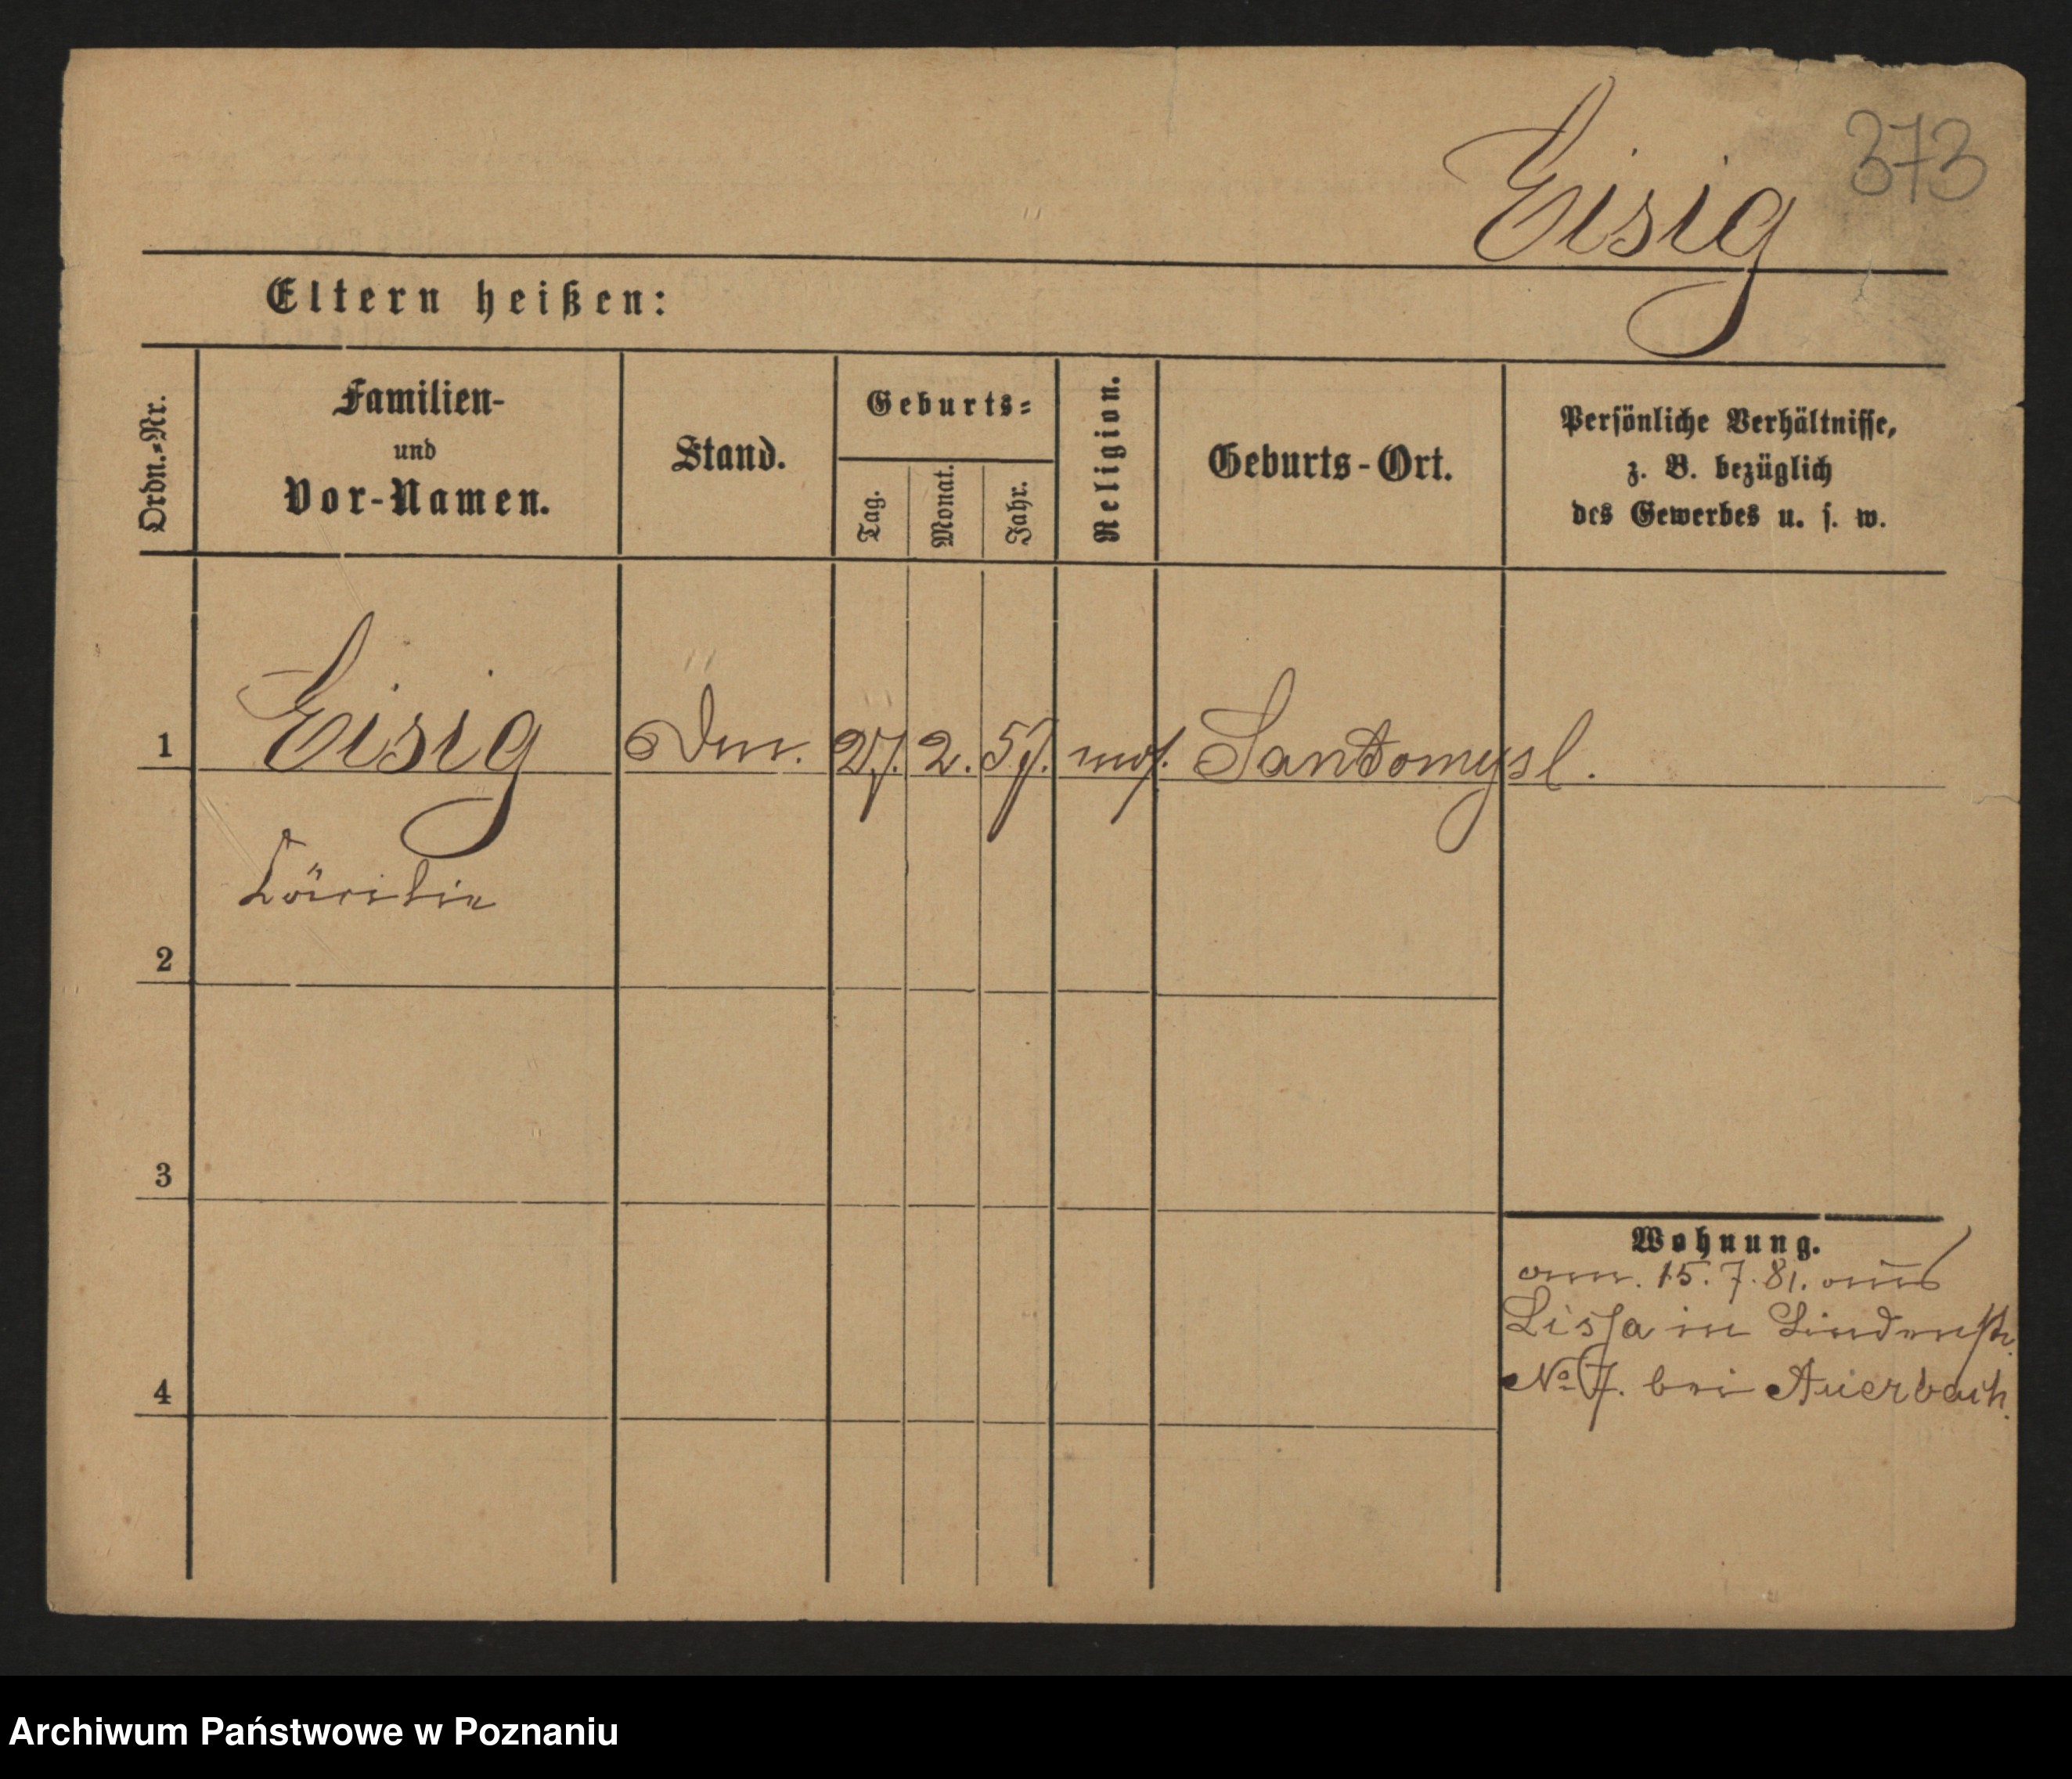 373
Eisig
Eltern heißen:
Ordn.-Nr.
Familien-
und
Vor-Namen.
Stand.
Geburts-
Tag.
Monat.
Jahr.
Religion.
Geburts-Ort.
Persönliche Verhältnisse,
z. B. bezüglich
des Gewerbes u. s. w.
1 Eisig 27. 2. 57. mos. Santomysl.
2
3
4
Wohnung.
am. 15. 7. 81. aus
Lissa in Lindenstr.
No 7. bei Auerbach.
Archiwum Państwowe w Poznaniu